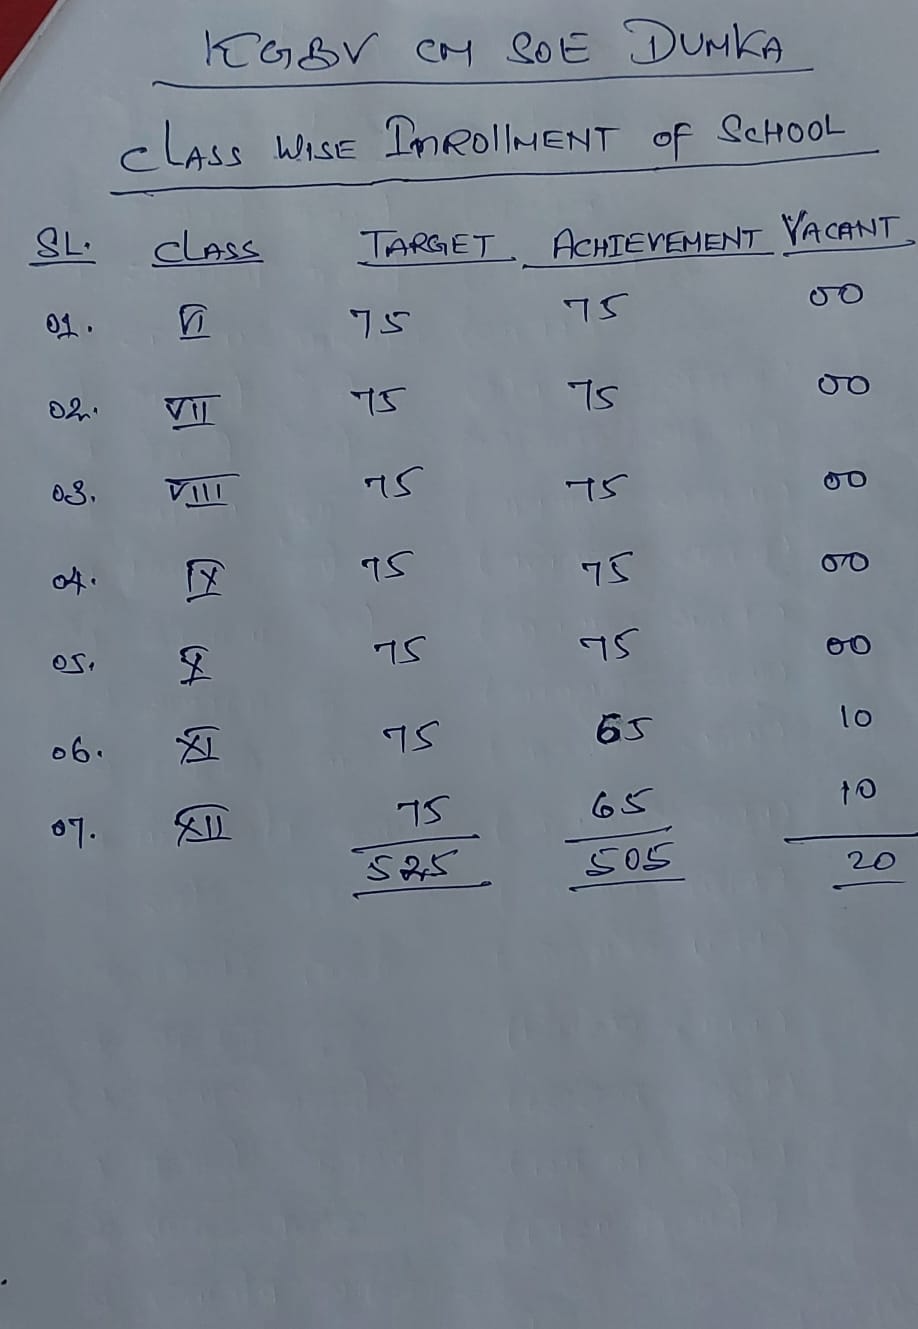 KGBV CM SOE DUMKA
CLASS WISE INROllMENT OF SCHOOL
SL. CLASS TARGET ACHIEVEMENT VACANT
01. VI 75 75 00
02. VII 75 75 00
03. VIII 75 75 00
04. IX 75 75 00
05. X 75 75 00
06. XI 75 65 10
07. XII 75 65 10
525 505 20